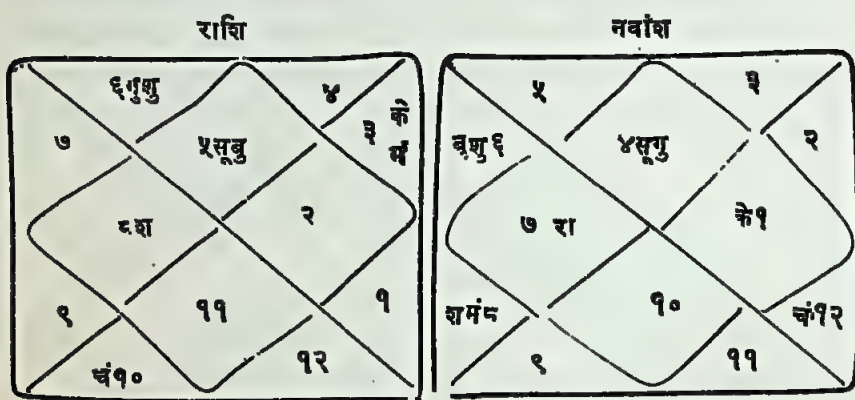 राशि
६गुशु
४
७
५सूबु
३ के
मं
८श
२
९
११
१
चं१०
१२
नवांश
५
३
बुशु६
४सूगु
२
७ रा
के१
शमं८
१०
चं१२
९
११